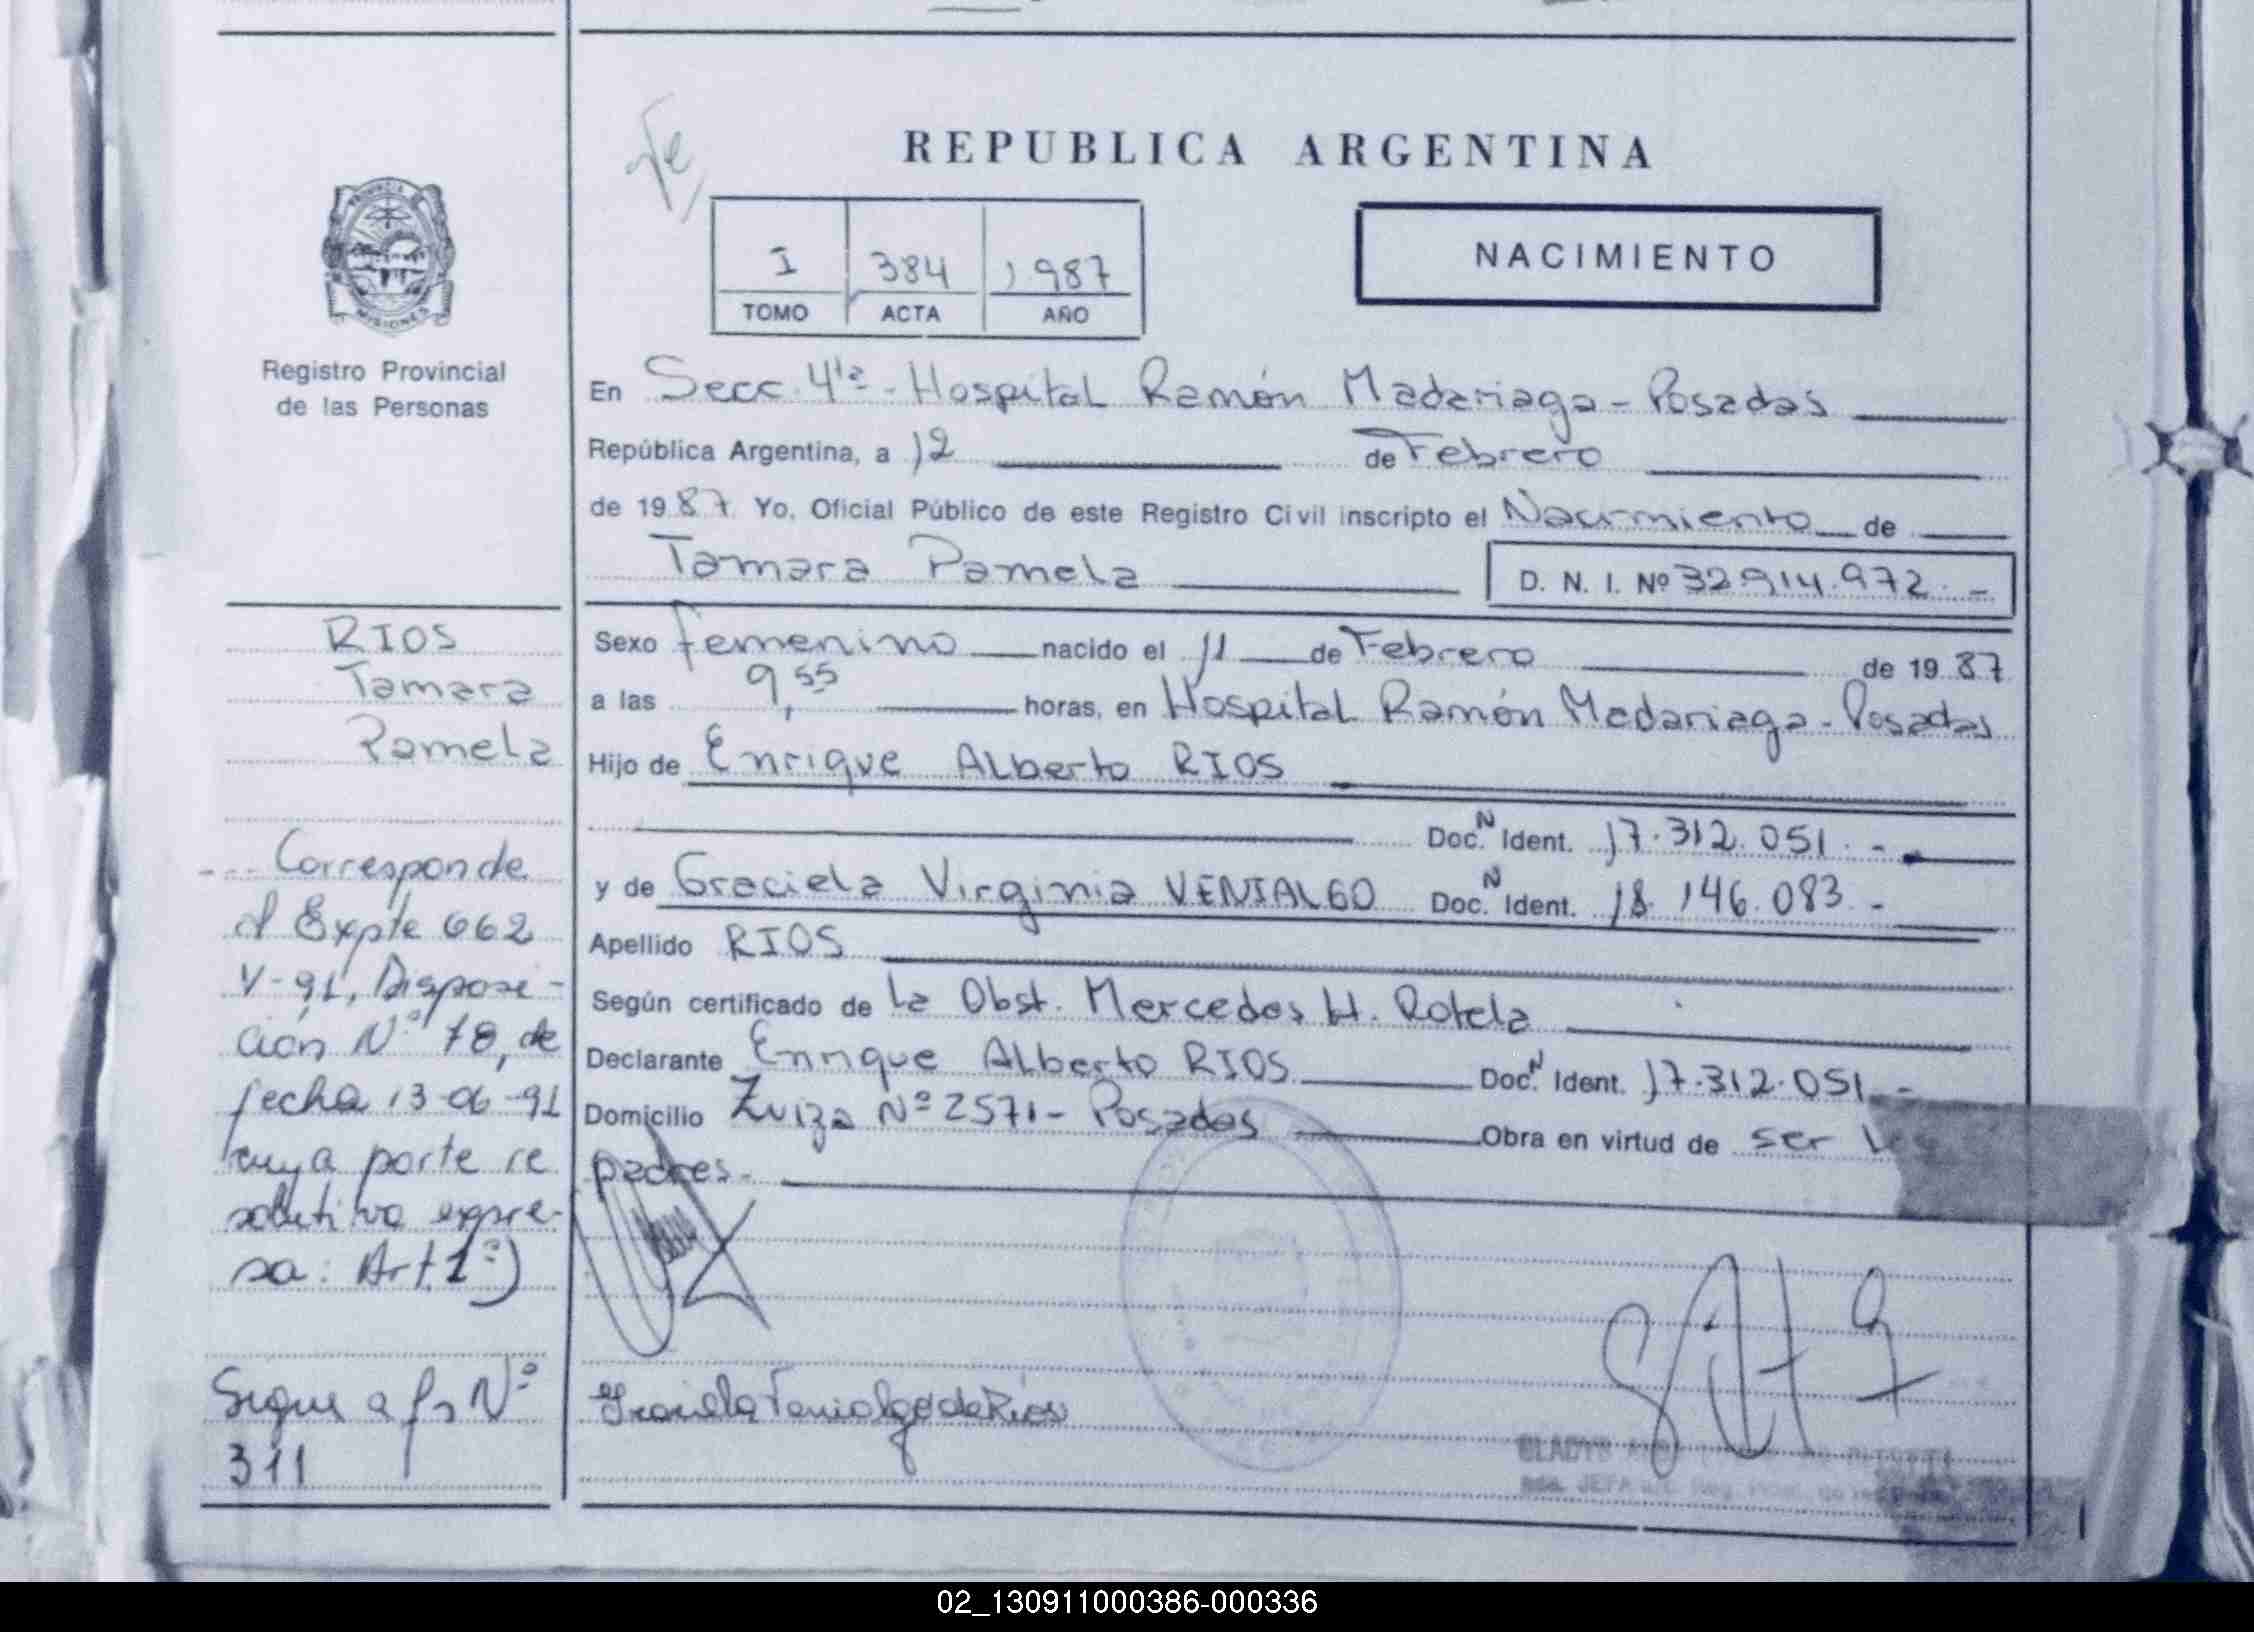 REPUBLICA ARGENTINA
I 384 1987
TOMO ACTA AÑO
NACIMIENTO
PROVINCIA
MISIONES
Registro Provincial
de las Personas
En Secc. 4ta - Hospital Ramón Madariaga - Posadas
República Argentina, a 12 de Febrero
de 1987. Yo, Oficial Público de este Registro Civil inscripto el Nacimiento de
Tamara Pamela
D. N. I. Nº 32.914.972.-
Sexo femenino nacido el 11 de Febrero de 1987
a las 9,55 horas, en Hospital Ramón Madariaga - Posadas
Hijo de Enrique Alberto RIOS
Doc. N Ident. 17.312.051.-
y de Graciela Virginia VENIALGO Doc. N Ident. 18.146.083.-
Apellido RIOS
Según certificado de la Obst. Mercedes H. Rotela
Declarante Enrique Alberto RIOS Doc. N Ident. 17.312.051.-
Domicilio Zuiza Nº 2571 - Posadas Obra en virtud de ser los
padres.-
RIOS
Tamara
Pamela
Corresponde
al Expte 662
V-91, Disposi-
ción Nº 78, de
fecha 13-06-91
cuya parte re
solutiva expre-
sa: Art. 1º)
Sigue a fs Nº
311
Graciela Venialgo de Rios
GLADYS
JEFA
02_130911000386-000336